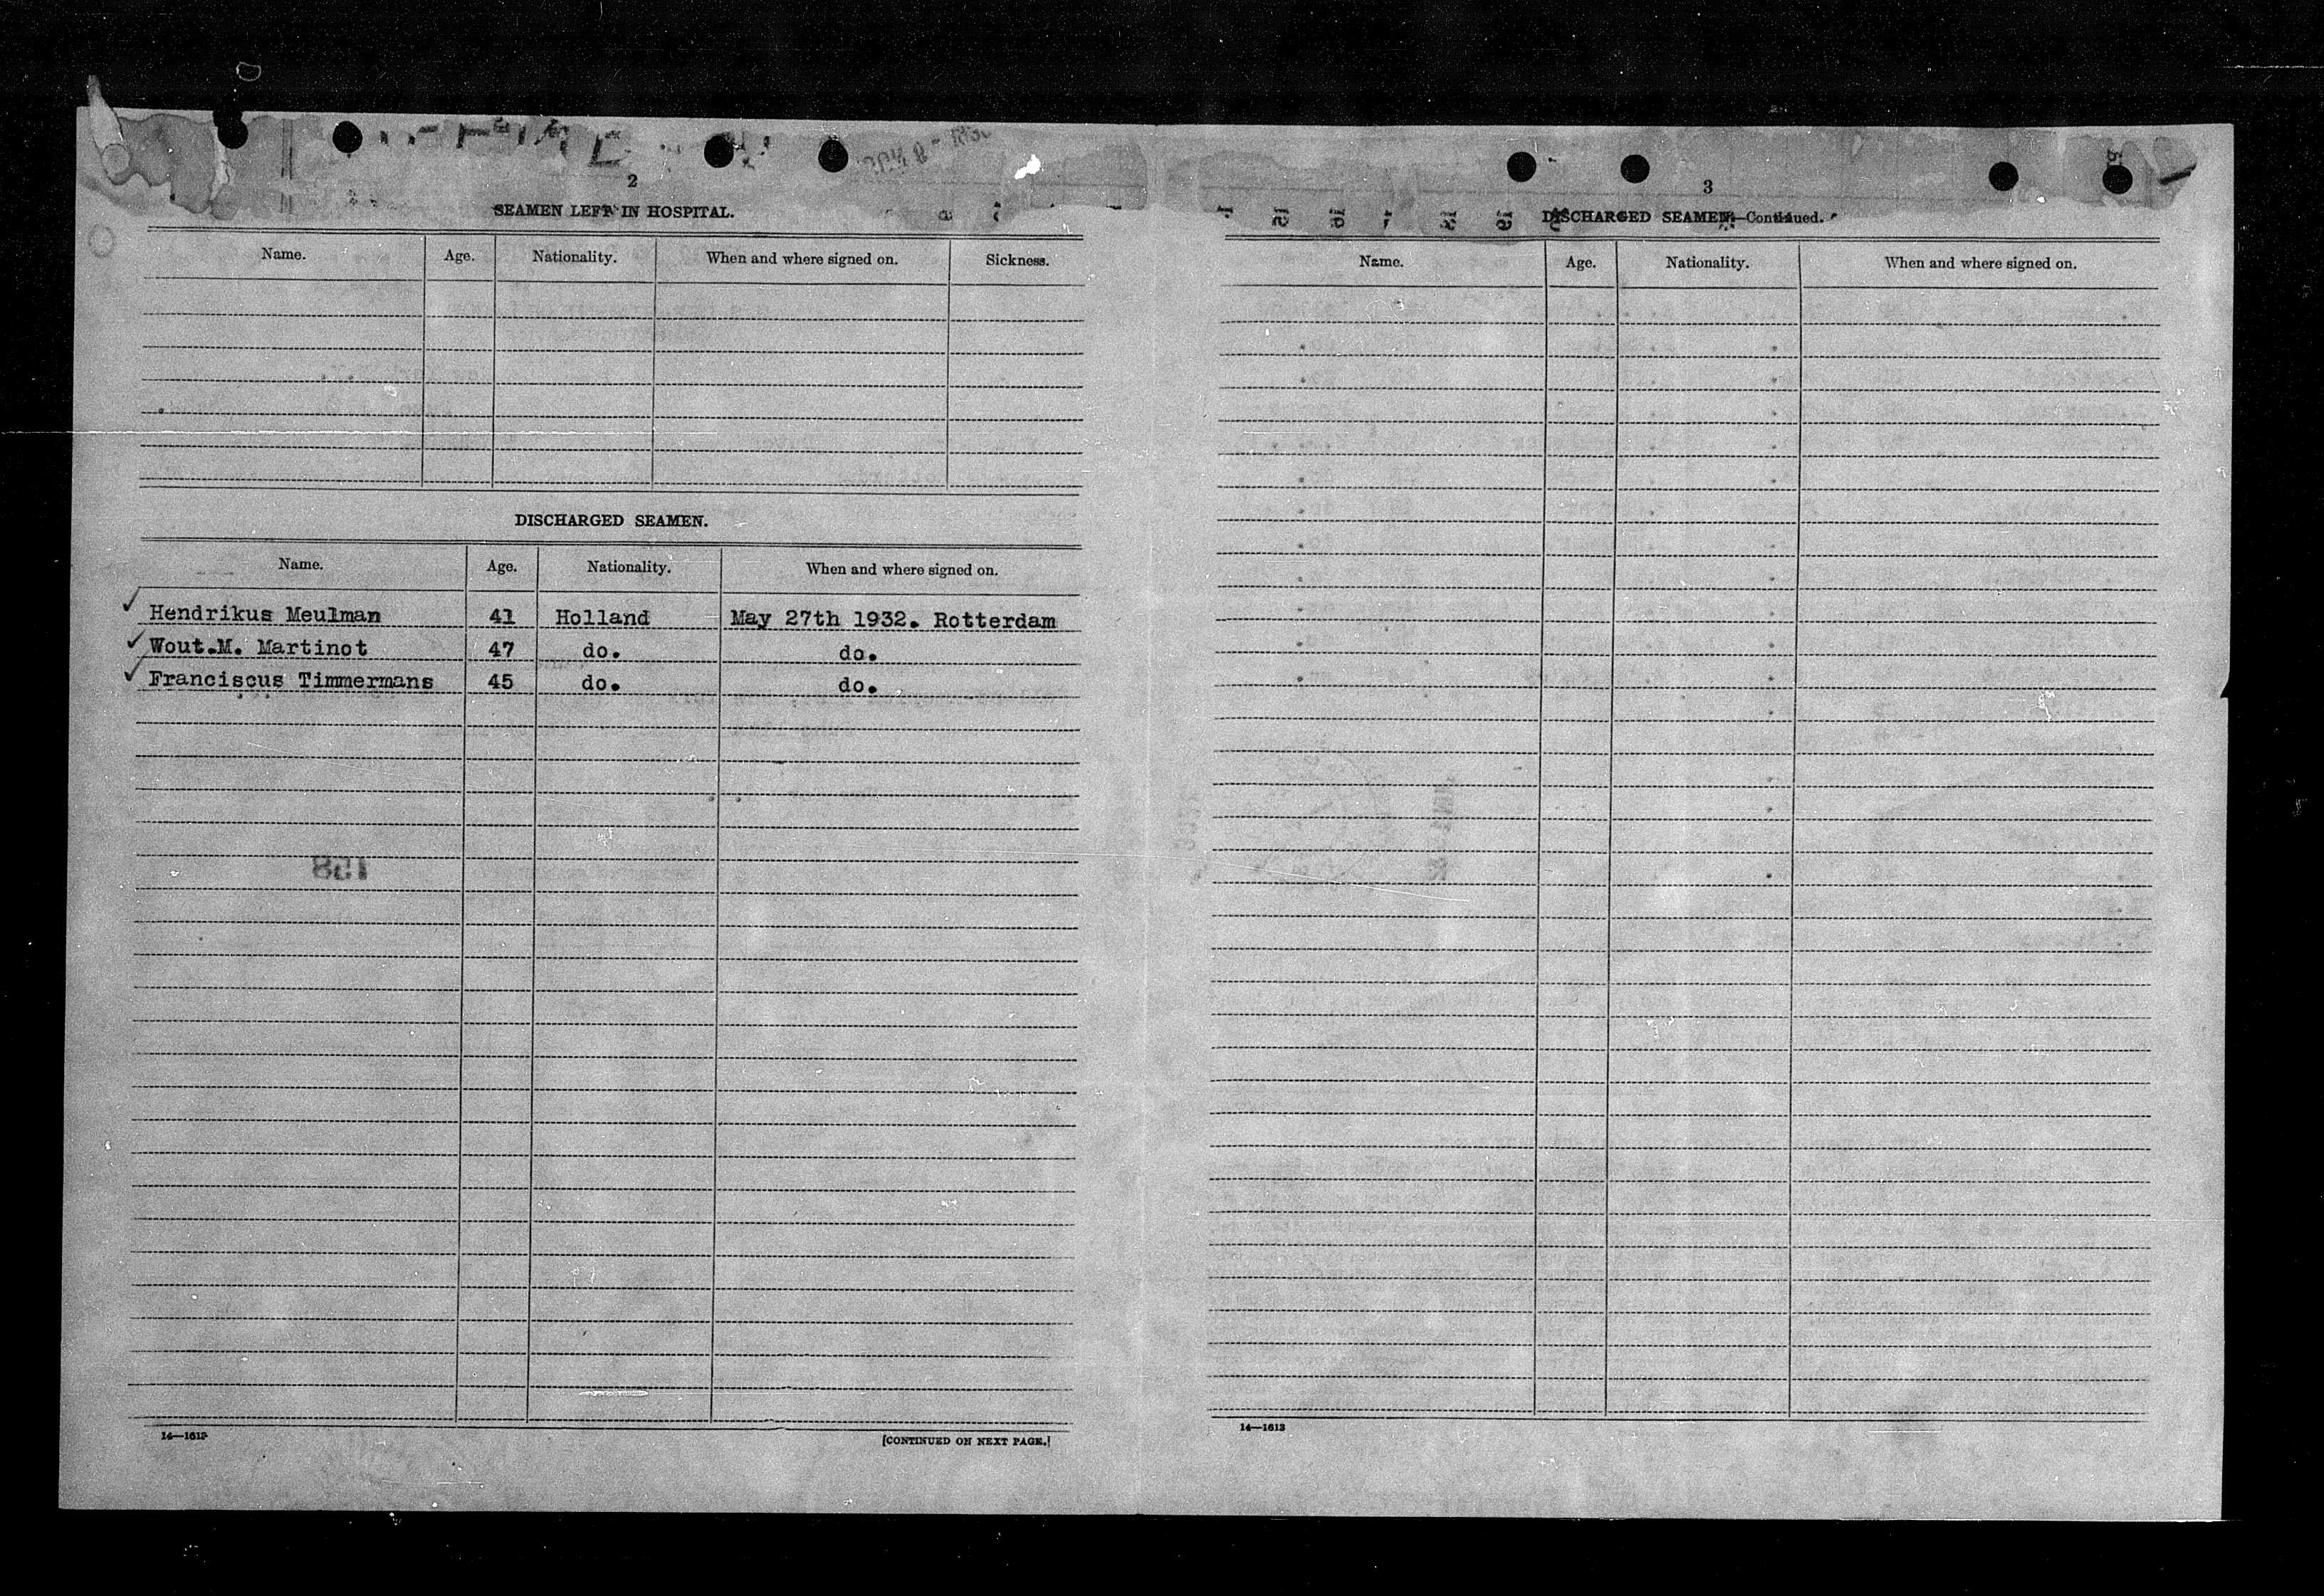 2
SEAMEN LEFT IN HOSPITAL.
Name. Age. Nationality. When and where signed on. Sickness.
DISCHARGED SEAMEN.
Name. Age. Nationality. When and where signed on.
Hendrikus Meulman 41 Holland May 27th 1932. Rotterdam
Wout.M. Martinot 47 do. do.
Franciscus Timmermans 45 do. do.
14—1613
[CONTINUED ON NEXT PAGE.]
3
DISCHARGED SEAMEN—Continued.
Name. Age. Nationality. When and where signed on.
14—1613